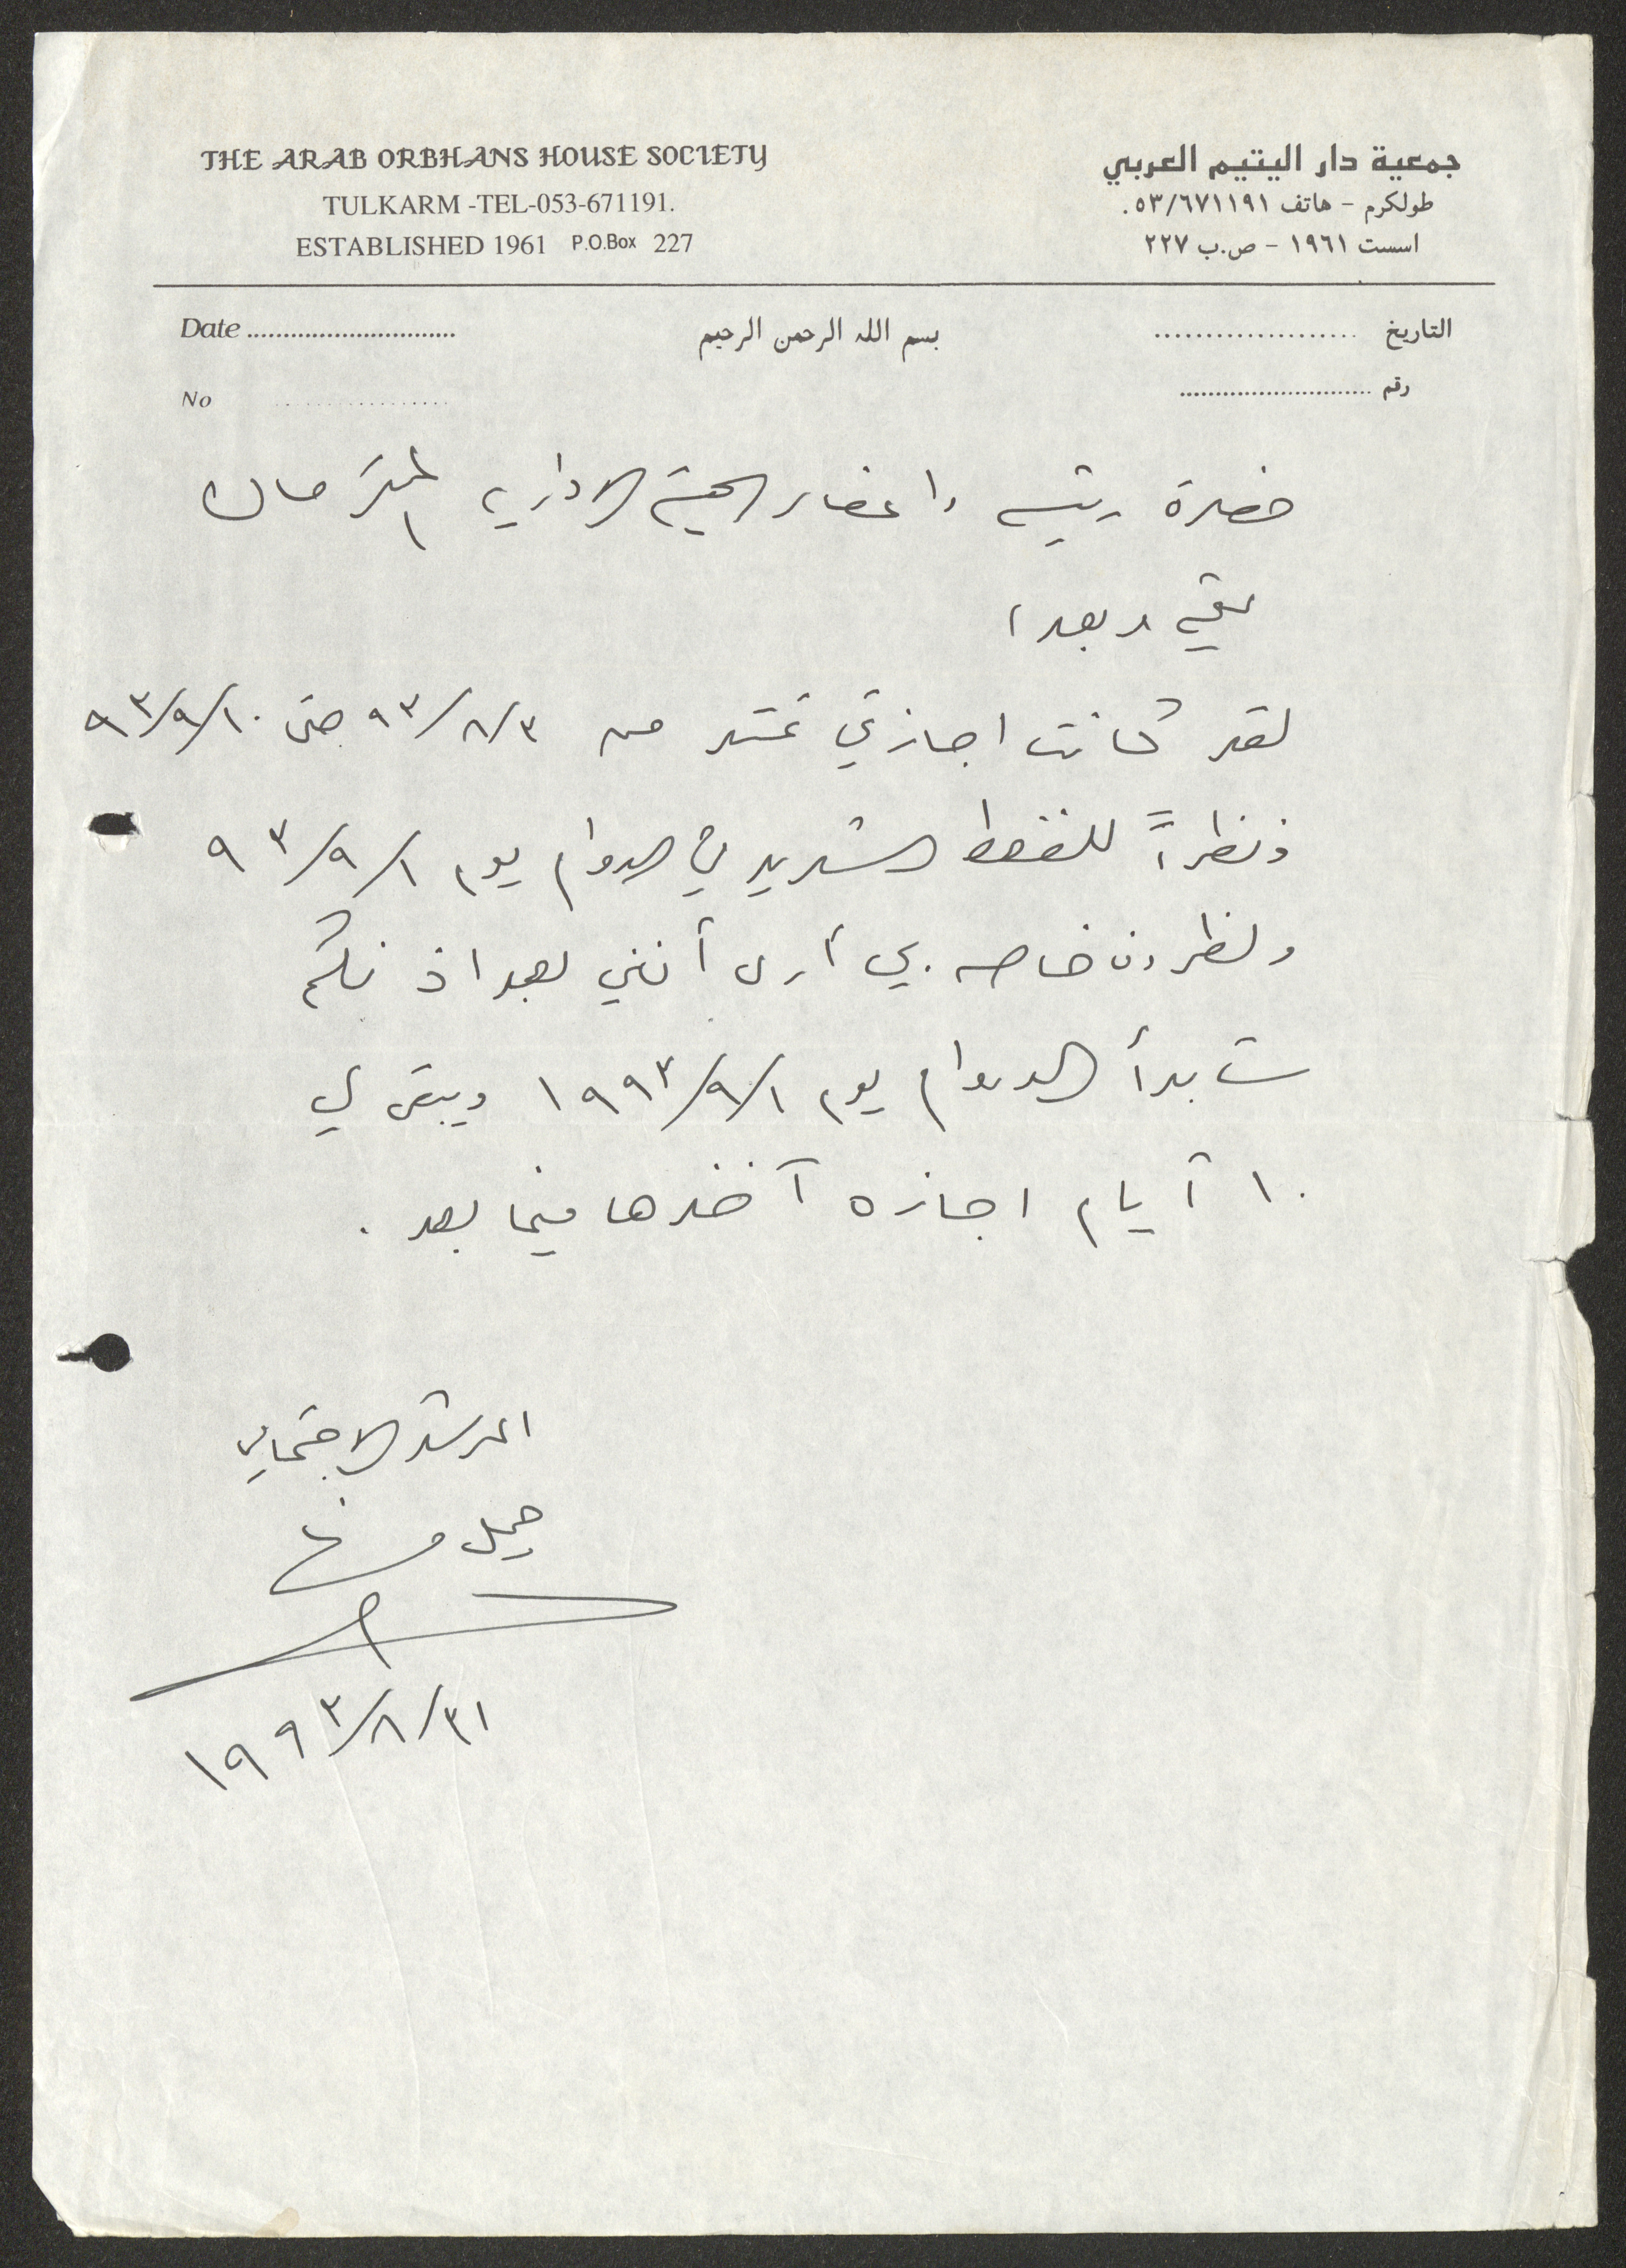 THE ARAB ORBHANS HOUSE SOCIETY
TULKARM -TEL-053-671191.
ESTABLISHED 1961 P.O.Box 227
جمعية دار اليتيم العربي
طولكرم - هاتف ٠٥٣/٦٧١١٩١
اسست ١٩٦١ - ص.ب ٢٢٧
Date ............................
بسم الله الرحمن الرحيم
التاريخ ....................
No .................
رقم ...........................
حضرة رئيس واعضاء الهيئة الادارية المحترمين
تحية وبعد ،
لقد كانت اجازتي تمتد من ٩٣/٨/٣ حتى ٩٣/٩/١٠
ونظراً للضغط الشديد في الدوام يوم ٩٣/٩/١
ولظروف خاصه بي أرى أنني بعد اذنكم
سأبدأ الدوام يوم ١٩٩٣/٩/١ ويبقى لي
١٠ أيام اجازه آخذها فيما بعد .
المرشد الاجتماعي
جميل
١٩٩٣/٨/٣١